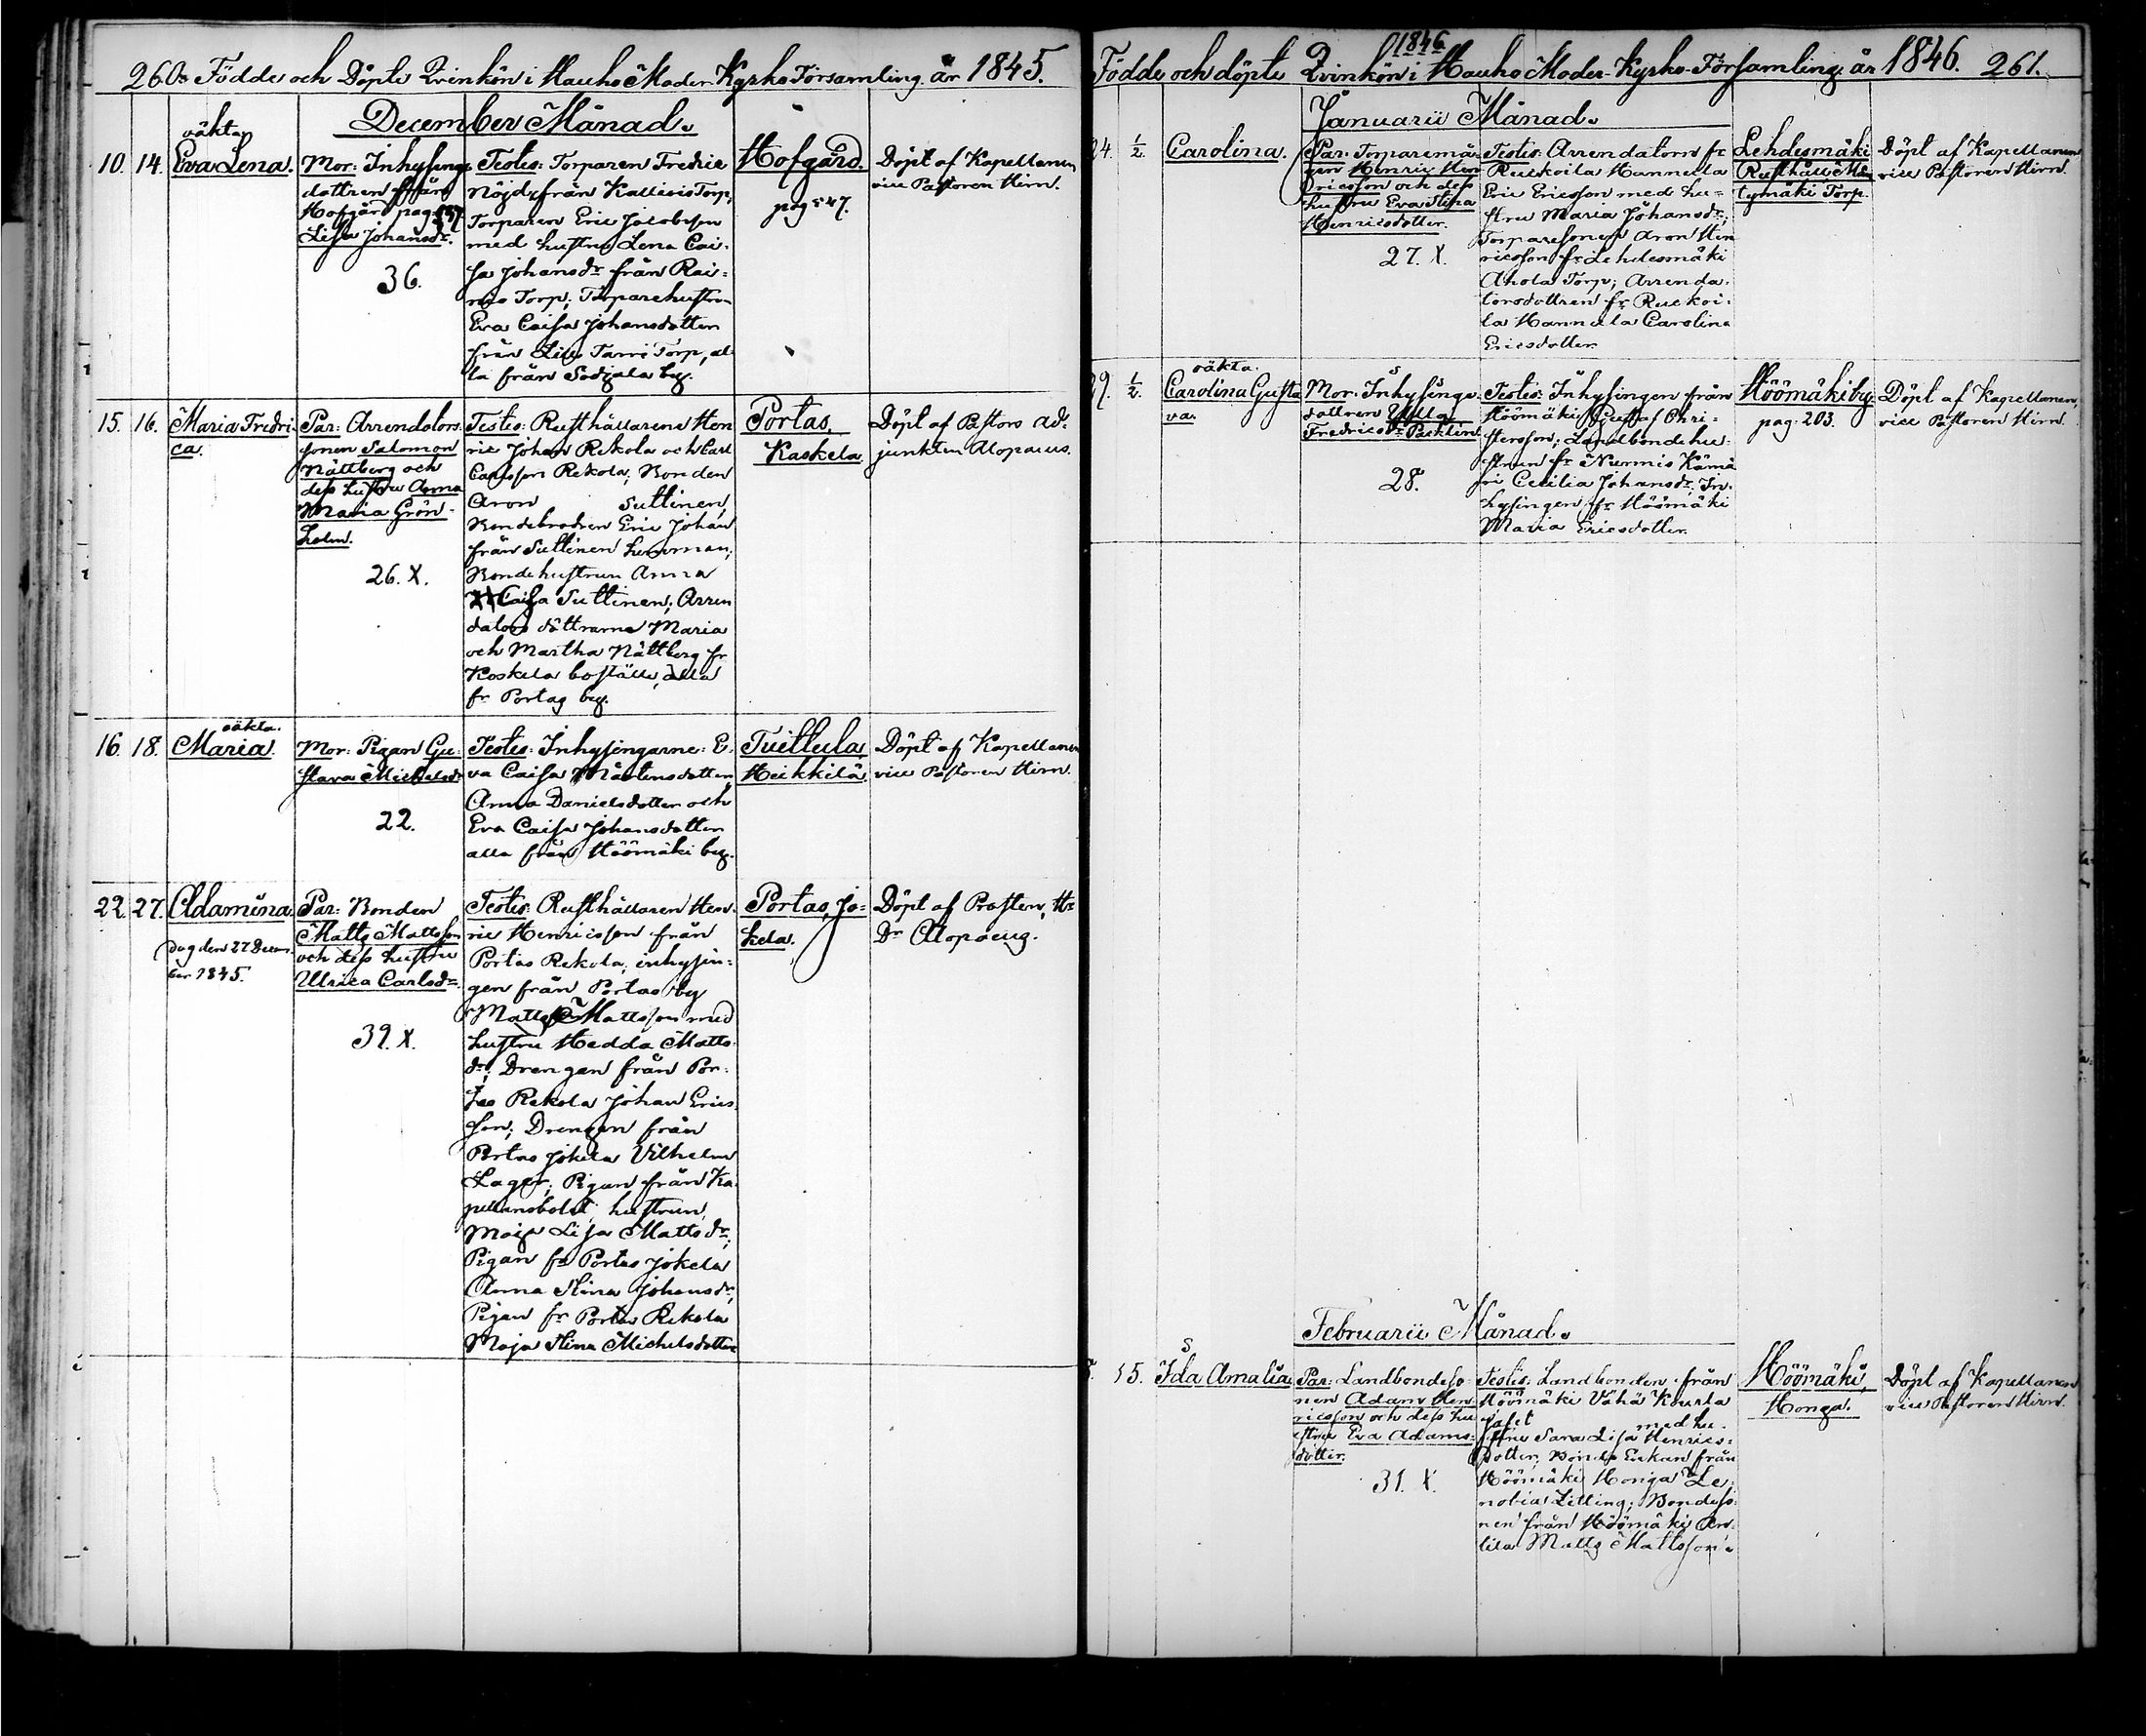 260. Födde och Döpte Qvinkön i Hauho Moder Kyrko Församling. år 1845.
December Månad.
oäkta
10. 14. Eva Lena.
Mor: Inhysings
dottren från
Hofgård pag: 557
Lisa Johansdr.
36.
Testes: Torparen Fredric
Nöjd, från Kallióis Torp,
Torparen Eric Jacobsson
med hustru Lena Cai-
sa Johansdr från Rai-
nio Torp; Torparehustru
Eva Caisa Johansdotter
från Torp, al-
la från Sodjala by.
Hofgård.
pag: 47.
Döpt af Kapellanen
vice Pastoren Hirn.
15. 16. Maria Fredri
ca.
Par: Arrendators
sonen Salomon
Nättberg och
dess hustru Anna
Maria Grön-
holm.
26. X.
Testes: Rusthållarena Hen
ric Johan Rekola och Carl
Carlsson Rekola; Bonden
Aron Suttinen,
Bondebrodren Eric Johan
från Suttinen hemman;
Bondehustrun Anna
Caisa Suttinen; Arren
dators döttrarne Maria
och Martha Nättberg fr
Koskela boställe, alla
fr Portas by.
Portas,
Kaskela
Döpt af Pastors ad-
junkten Alopaeus.
oäkta.
16. 18. Maria.
Mor: Pigan Gu-
stava Michelsdr
22.
Testes: Inhysingarne: E-
va Caisa Mårtensdotter,
Anna Danielsdotter och
Eva Caisa Johansdotter
alla från Höömäki by.
Tuittula,
Heikkilä.
Döpt af Kapellanen
vice Pastoren Hirn.
22. 27. Adamina.
Dag den 27 Decem-
ber 1845.
Par: Bonden
Matts Mattsson
och dess hustru
Ulrica Carlsdr.
39. X.
Testes: Rusthållaren Hen-
ric Henricsson från
Portas Rekola; inhysin-
gen från Portas by
Matts Mattsson med
hustru Hedda Matts-
dr; Drengen från Por-
tas Rekola Johan Erics
son; Drengen från
Portas Jokela Vilhelm
Lager; Pigan från Ka-
pellansbolet hustrun
Maja Lisa Mattsdr;
Pigan fr Portas Jokela
Anna Stina Johansdr;
Pigan fr Portas Rekola
Maja Stina Michelsdotter
Portas, Jo-
kela.
Döpt af Prosten, Hr
Dr Alopaeus.
1846
Födde och döpte Qvinkön i Hauho Moder-Kyrko-Församling. år 1846. 261.
Januarii Månad.
24. 1/2. Carolina.
Par: Torparemå-
gen Henric Hen
ricsson och dess
hustru Eva Stina
Henricsdotter.
27. X.
Testes: Arrendatorn fr
Ruckoila Hannula
Eric Ericsson med hu-
stru Maria Johansdr;
Torparesonen Aron Hen
ricsson fr Lehdesmäki
Ahola Torp; Arrenda-
torsdottren fr Ruckoi-
la Hannula Carolina
Ericsdotter.
Lehdesmäki
Rusthåll, My
tymäki Torp.
Döpt af Kapellanen
vice Pastoren Hirn.
oäkta.
29. 1/2. Carolina Gusta
va.
Mor: Inhysings
dottren Ulla
Fredricsdr Packlin
28.
Testes: Inhysingen från
Höömäki Gustaf Chri-
stersson; Landbondehu-
strun fr Nurmis Kämä
ri Cecilia Johansdr; In-
hysingen fr Höömäki
Maria Ericsdotter.
Höömäki by
pag. 203.
Döpt af Kapellanen,
vice Pastoren Hirn.
Februarii Månad.
15. Ida Amalia.
Par: Landbondeso-
nen Adam Hen
ricsson och dess hu
stru Eva Adams-
dotter.
31. X.
Testes: Landbonden från
Höömäki Vähä Kourla
med hu-
stru Sara Lisa Henrics-
dotter; Bonde Enkan från
Höömäki Honga Ze-
nobia Litling; Bondeso-
nen från Höömäki An-
tila Matts Mattsson.
Höömäki,
Honga.
Döpt af Kapellanen
vice Pastoren Hirn.